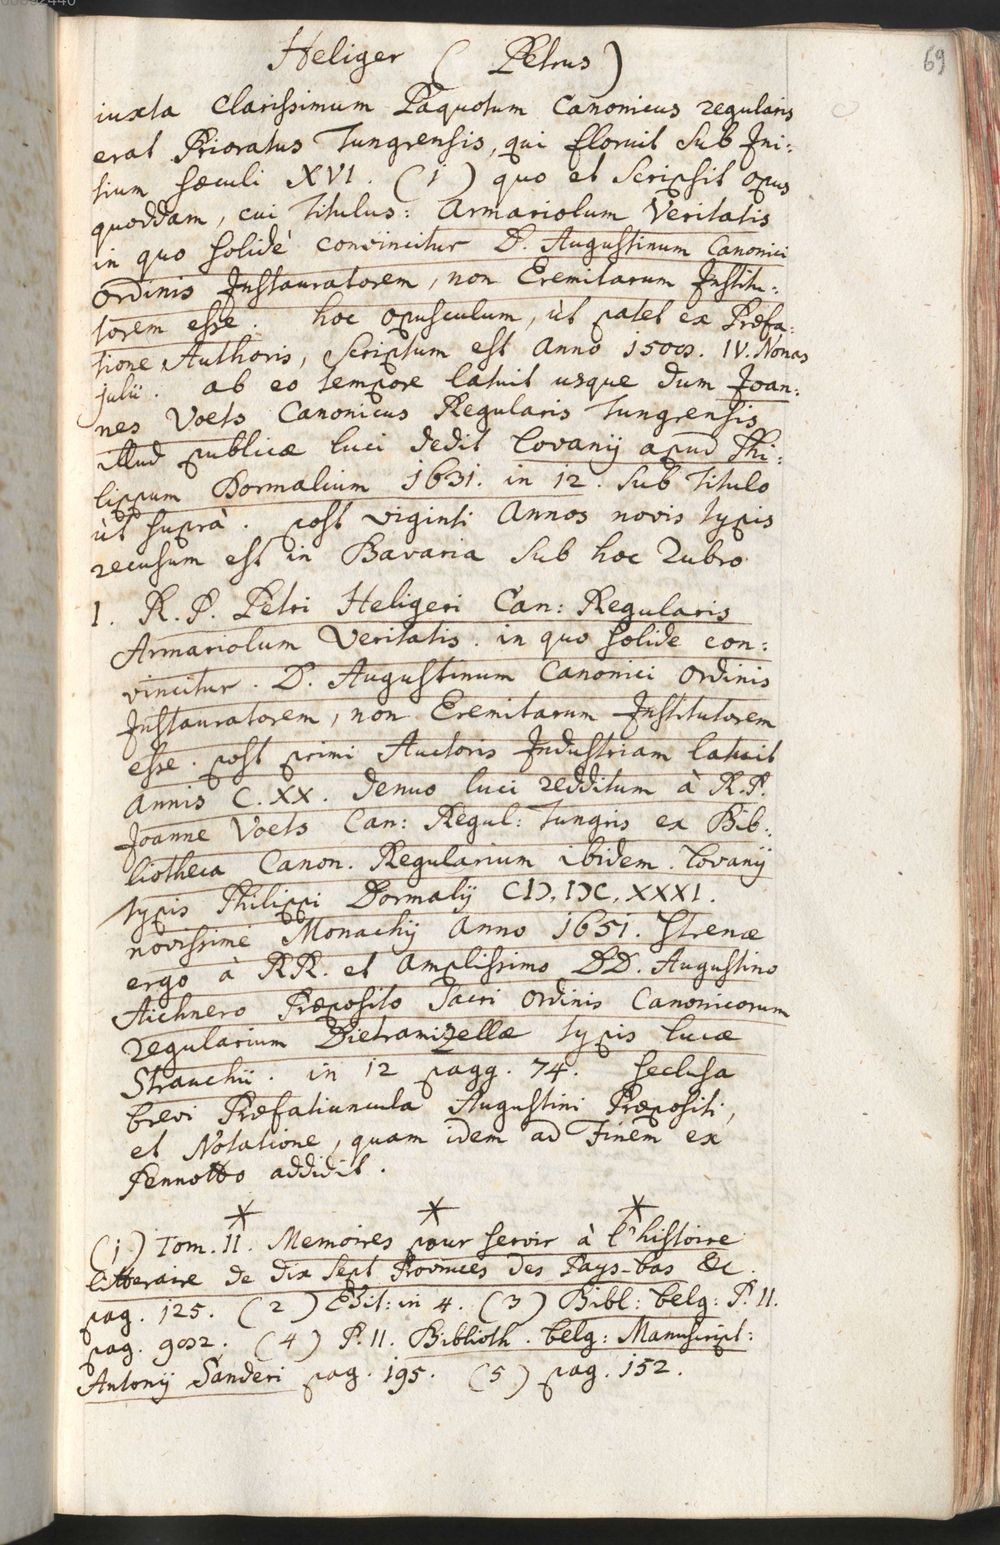 69
Heliger ( Petrus )
iuxta Clarissimum Paquotum Canonicus regularis
erat Prioratus Tungrensis, qui floruit sub Ini:
tium sæculi XVI. (1) quo et scripsit opus
quoddam, cui Titulus: Armariolum Veritatis
in quo solidè convincitur D. Augustinum Canonici
ordinis Instauratorem, non Eremitarum Institu:
torem esse. hoc opusculum, ùt patet ex Præfa:
tione Authoris, scriptum est Anno 1508. IV. Nonas
julii. ab eo tempore latuit usque dum Joan:
nes Voets Canonicus Regularis Tungrensis
illud publicæ luci dedit Lovanij apud Phi:
lippum Dormalium 1631. in 12. sub Titulo
ùt suprà. post viginti Annos novis typis
recusum est in Bavaria sub hoc Rubro
1. R. P. Petri Heligeri Can: Regularis
Armariolum Veritatis. in quo solide con:
vincitur. D. Augustinum Canonici ordinis
Instauratorem, non Eremitarum Institutorem
esse. post primi Auctoris Industriam latuit
annis C.XX. denuo luci redditum à R.P.
Joanne Voets Can: Regul: Tungris ex Bib:
liotheca Canon. Regularium ibidem. Lovanij
typis Philippi Dormalij CIↃ, IↃC, XXXI.
novissime Monachij Anno 1651. Strenæ
ergo à RR. et Amplissimo DD. Augustino
Aichnero Præposito Sacri ordinis Canonicorum
regularium Dietramizellæ typis Lucæ
Strauchii. in 12 pagg. 74. seclusa
brevi Præfatiuncula Augustini Præpositi,
et Notatione, quam idem ad Finem ex
Pennotto addidit.
* * *
(1) Tom. II. Memoires pour servir à l'histoire
litteraire de dix sept Provinces des Pays-bas &c.
pag. 125. (2) Edit: in 4. (3) Bibl: belg: P. II.
pag. 982. (4) P. II. Biblioth. belg: Manuscript:
Antonij Sanderi pag. 195. (5) pag. 152.